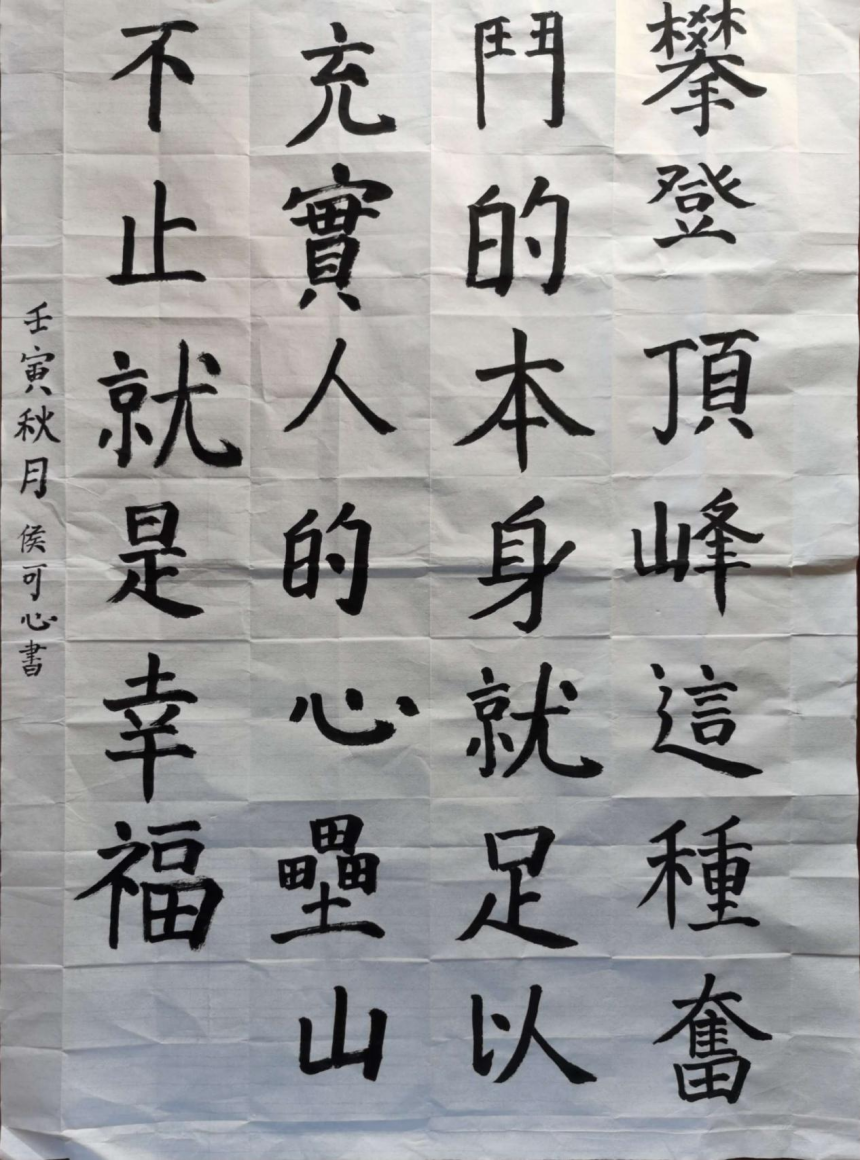 攀登頂峰這種奮
鬥的本身就足以
充實人的心壘山
不止就是幸福
壬寅秋月侯可心書